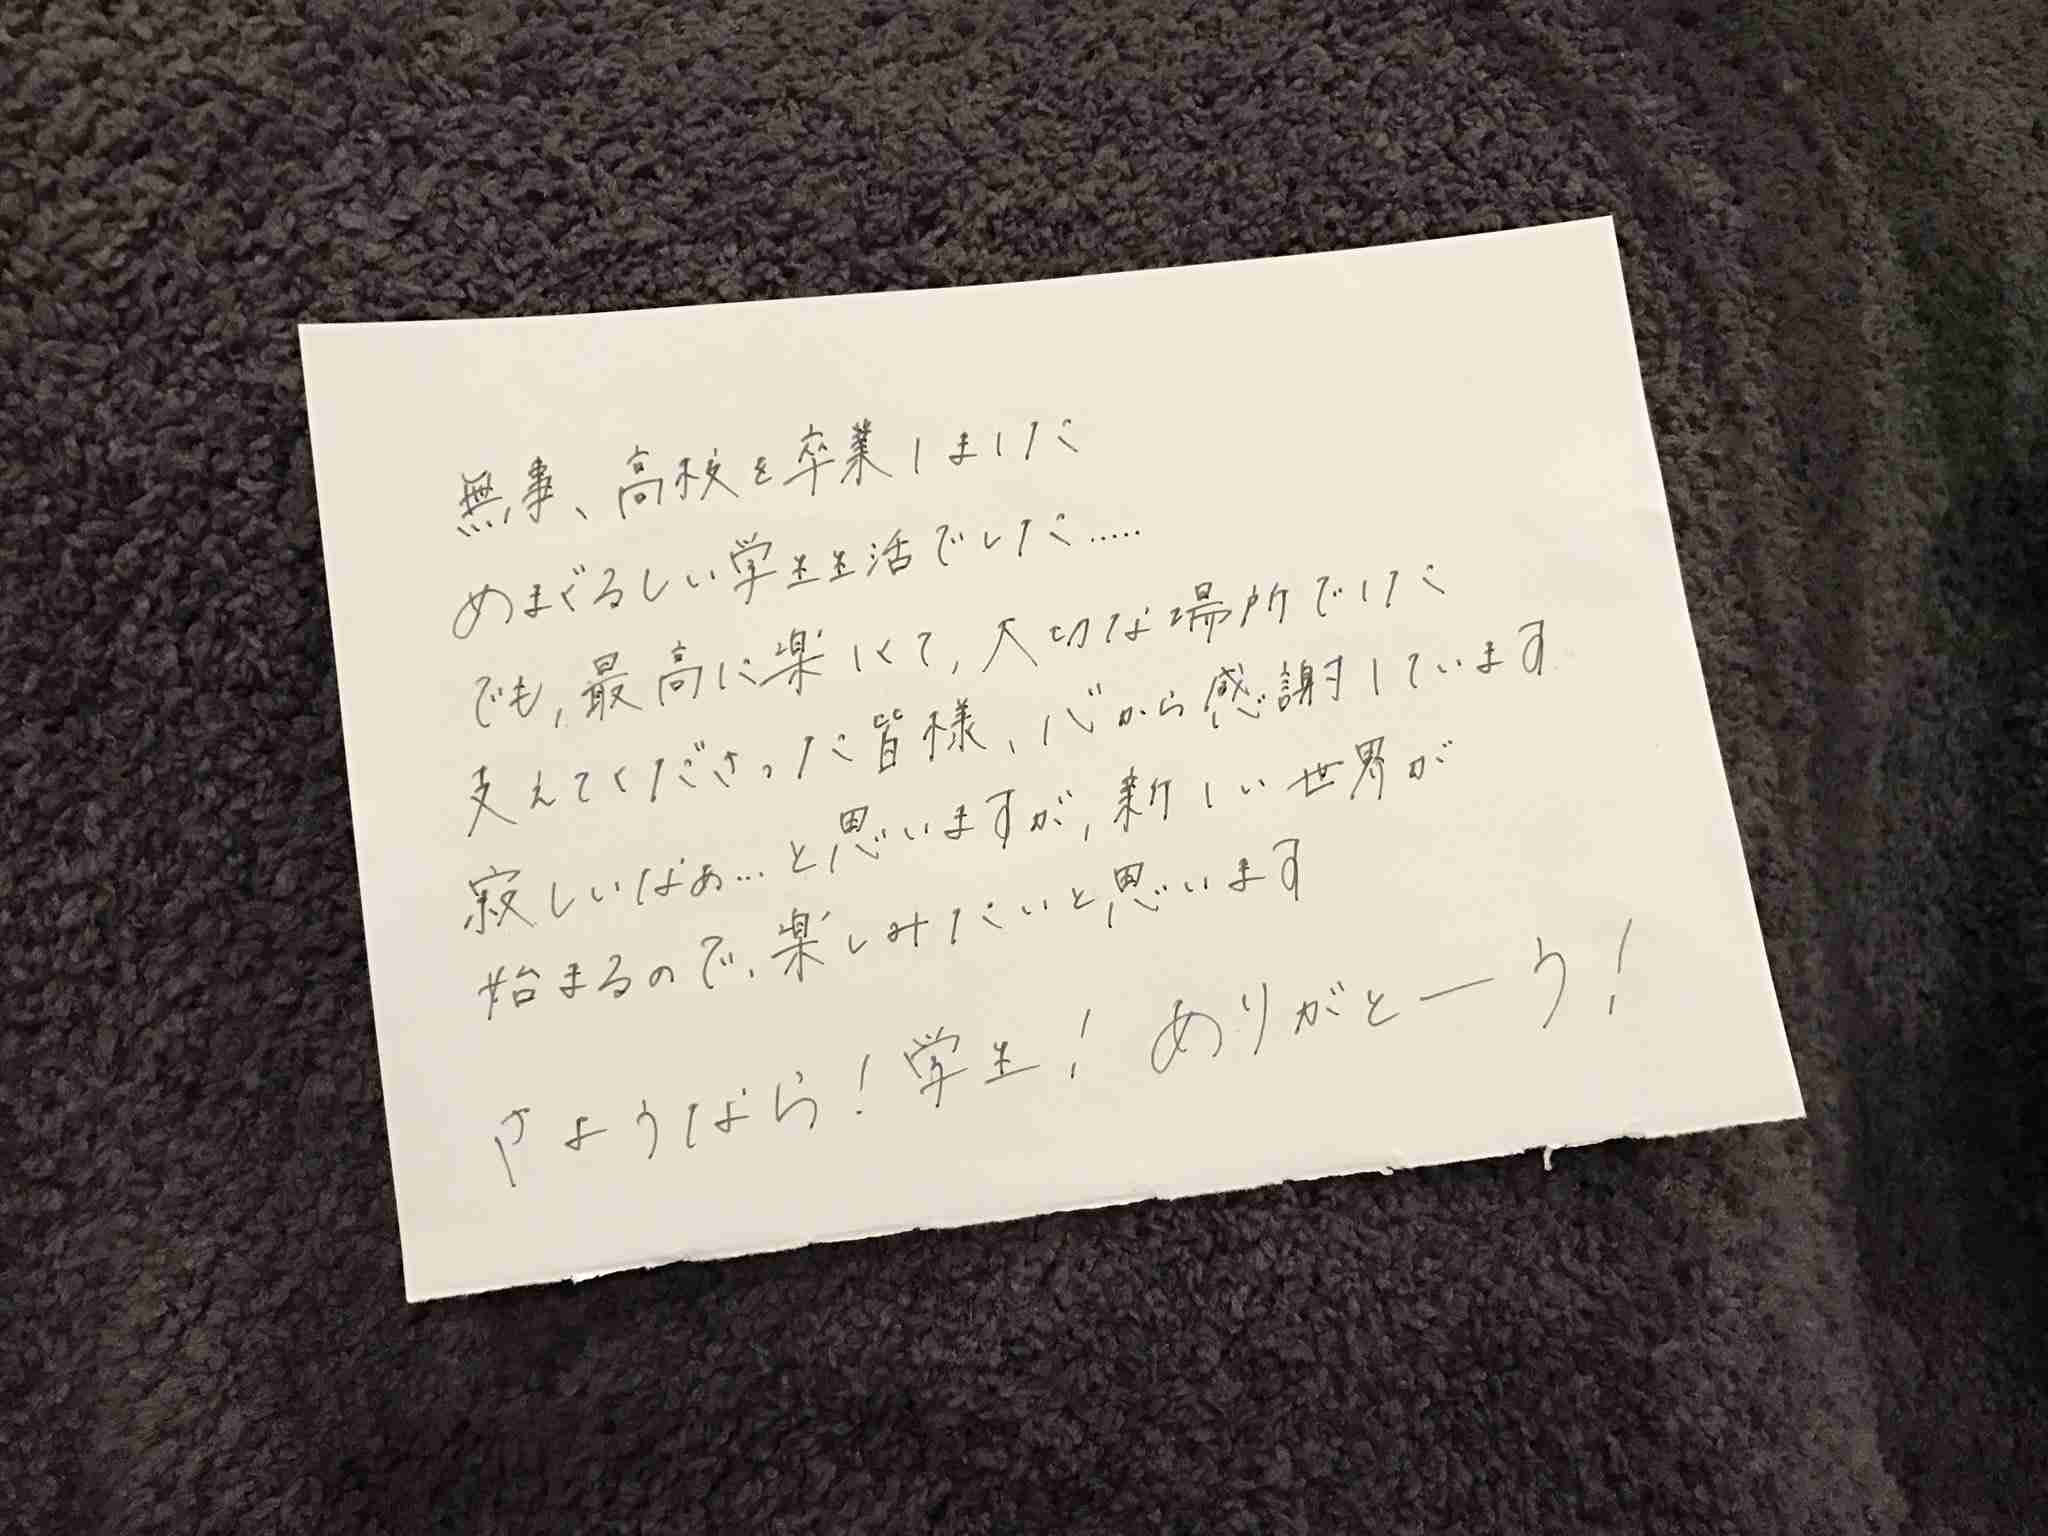 無事、高校を卒業しました
めまぐるしい学生生活でした.....
でも,最高に楽しくて,大切な場所でした
支えてくださった皆様、心から感謝しています
寂しいなぁ...と思いますが,新しい世界が
始まるので、楽しみたいと思います
さようなら!学生!ありがとーう!